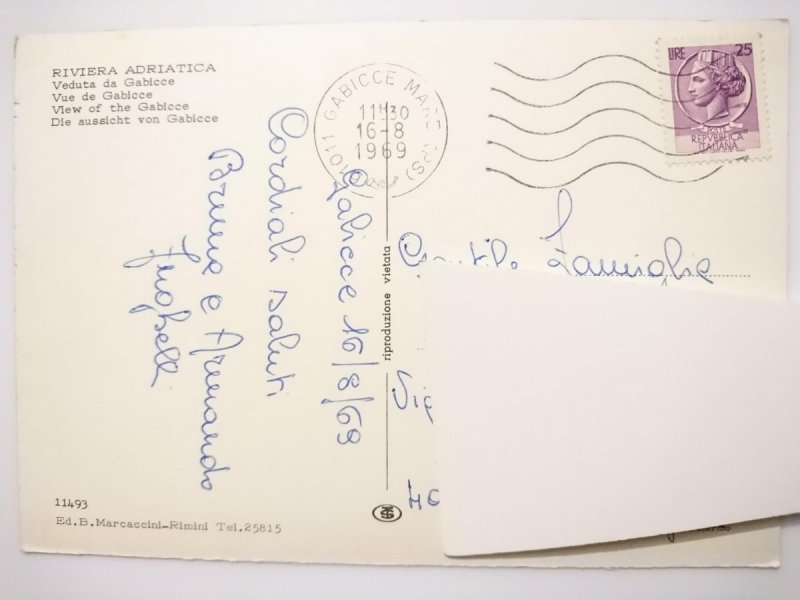 RIVIERA ADRIATICA
Veduta da Gabicce
Vue de Gabicce
View of the Gabicce
Die aussicht von Gabicce
61011 GABICCE MARE (PS)
1130
16-8
1969
LIRE 25
POSTE
REPUBBLICA
ITALIANA
Gabicce 16/8/69
Cordiali saluti
Bruna e Armando
riproduzione vietata
Gentile Famiglia
Via
40
11493
Ed.B.Marcaccini-Rimini Tel.25815